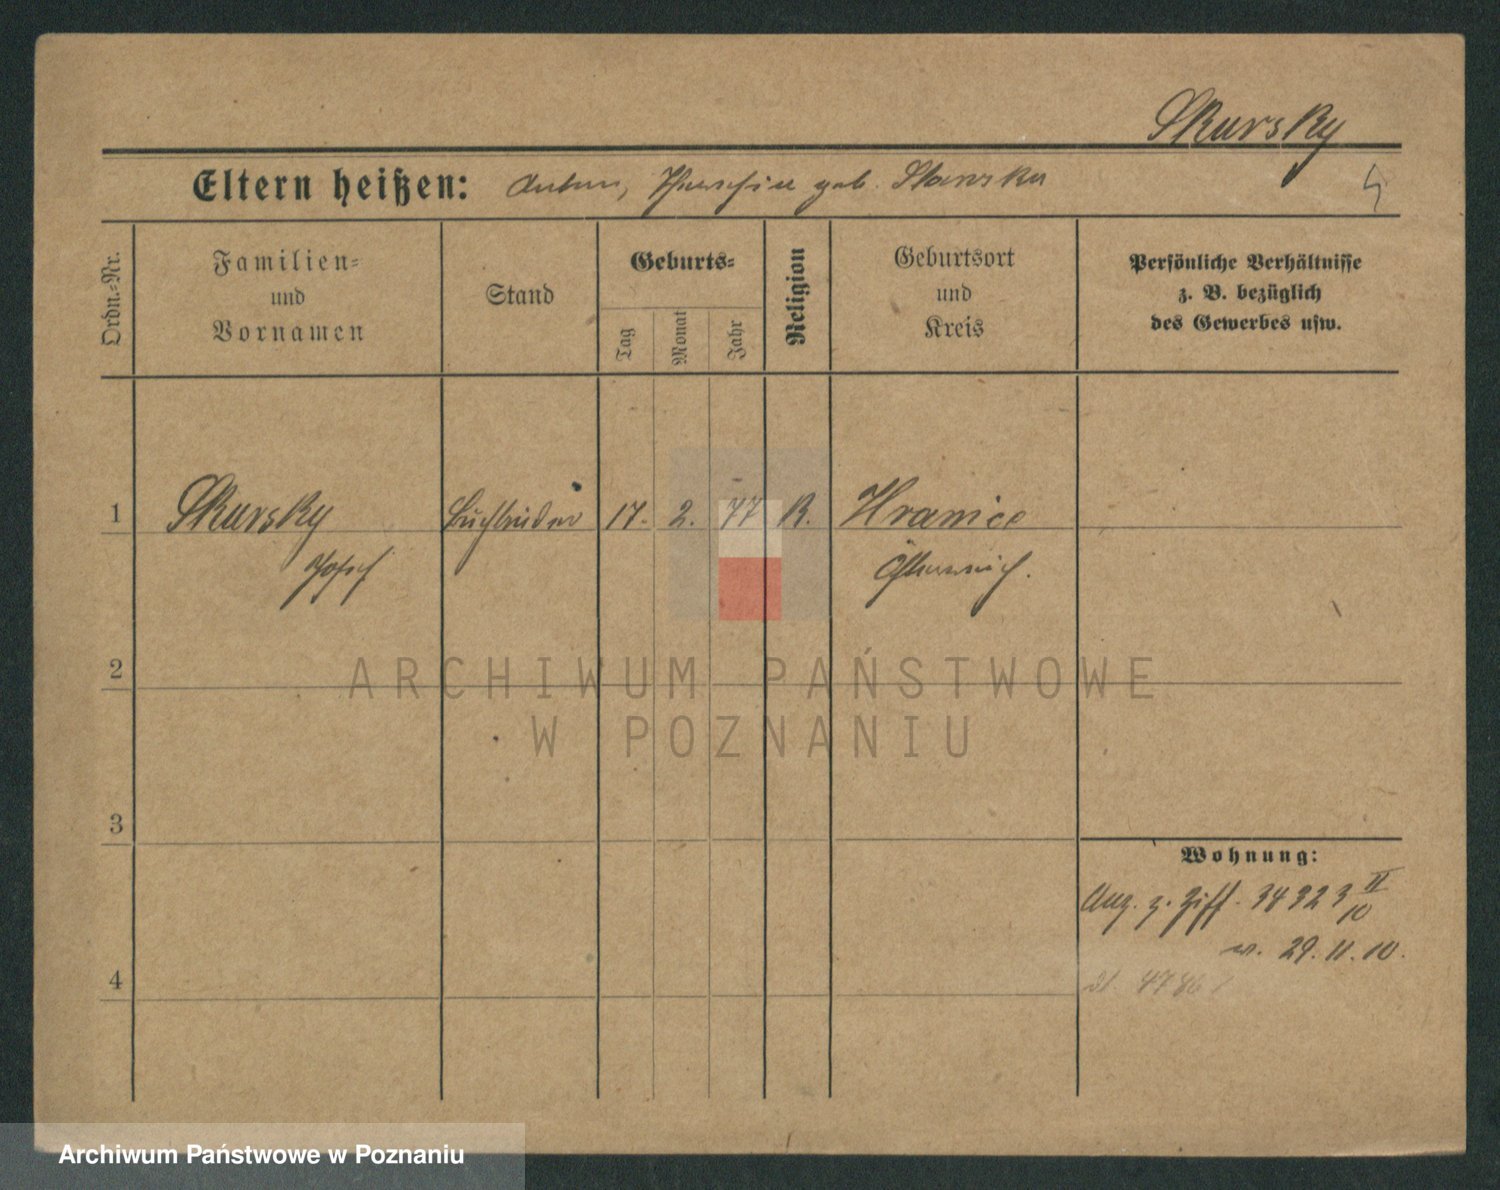 Skursky
Eltern heißen: Anton, geb. Slanska
Ordn.-Nr.
Familien-
und
Vornamen
Stand
Geburts-
Tag
Monat
Jahr
Religion
Geburtsort
und
Kreis
Persönliche Verhältnisse
z. B. bezüglich
des Gewerbes usw.
1 Skursky 17. 2. 77 R. Hranice
Josef Österreich.
2
3
4
Wohnung:
Ang. z. Ziff. 34923 II/10
w. 29.11.10.
ARCHIWUM PAŃSTWOWE
W POZNANIU
Archiwum Państwowe w Poznaniu